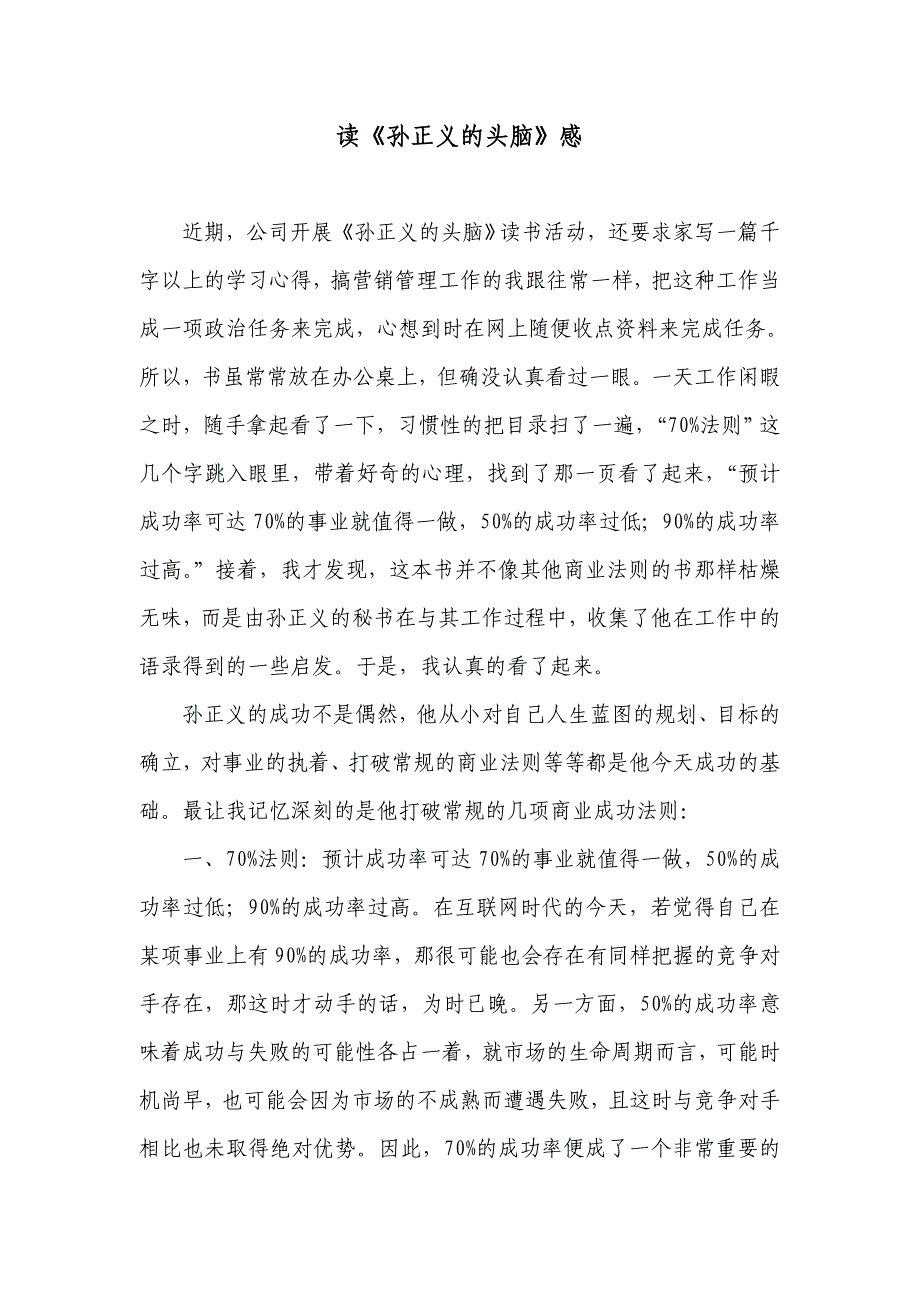 读《孙正义的头脑》感
近期，公司开展《孙正义的头脑》读书活动，还要求家写一篇千
字以上的学习心得，搞营销管理工作的我跟往常一样，把这种工作当
成一项政治任务来完成，心想到时在网上随便收点资料来完成任务。
所以，书虽常常放在办公桌上，但确没认真看过一眼。一天工作闲暇
之时，随手拿起看了一下，习惯性的把目录扫了一遍，“70%法则”这
几个字跳入眼里，带着好奇的心理，找到了那一页看了起来，“预计
成功率可达 70%的事业就值得一做，50%的成功率过低；90%的成功率
过高。”接着，我才发现，这本书并不像其他商业法则的书那样枯燥
无味，而是由孙正义的秘书在与其工作过程中，收集了他在工作中的
语录得到的一些启发。于是，我认真的看了起来。
孙正义的成功不是偶然，他从小对自己人生蓝图的规划、目标的
确立，对事业的执着、打破常规的商业法则等等都是他今天成功的基
础。最让我记忆深刻的是他打破常规的几项商业成功法则：
一、70%法则：预计成功率可达 70%的事业就值得一做，50%的成
功率过低；90%的成功率过高。在互联网时代的今天，若觉得自己在
某项事业上有 90%的成功率，那很可能也会存在有同样把握的竞争对
手存在，那这时才动手的话，为时已晚。另一方面，50%的成功率意
味着成功与失败的可能性各占一着，就市场的生命周期而言，可能时
机尚早，也可能会因为市场的不成熟而遭遇失败，且这时与竞争对手
相比也未取得绝对优势。因此，70%的成功率便成了一个非常重要的